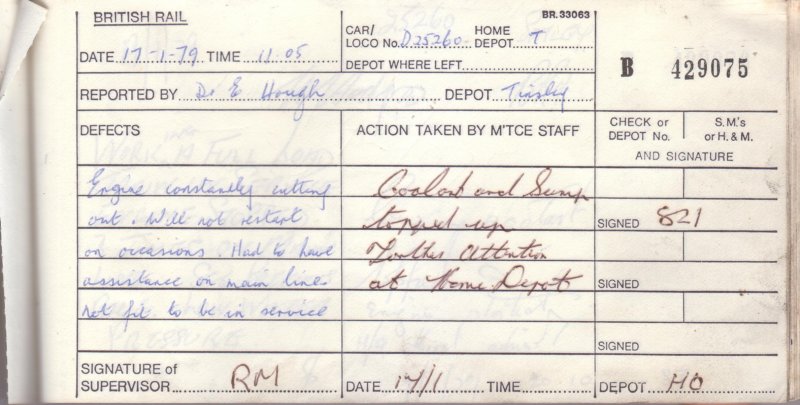 BRITISH RAIL
BR.33063
DATE 17-1-79 TIME 11.05
CAR/ LOCO No. D25260 HOME DEPOT. T
DEPOT WHERE LEFT
B 429075
REPORTED BY Dr E Hough DEPOT Tinsley
DEFECTS
ACTION TAKEN BY M'TCE STAFF
CHECK or DEPOT No.
S.M's or H. & M.
AND SIGNATURE
Engine constantly cutting
out. Will not restart
on occasions. Had to have
assistance on main lines
not fit to be in service
Coolant and Sump
topped up
Further Attention
at Home Depot
SIGNED 821
SIGNED
SIGNED
SIGNATURE of SUPERVISOR RM
DATE 17/1 TIME
DEPOT HO